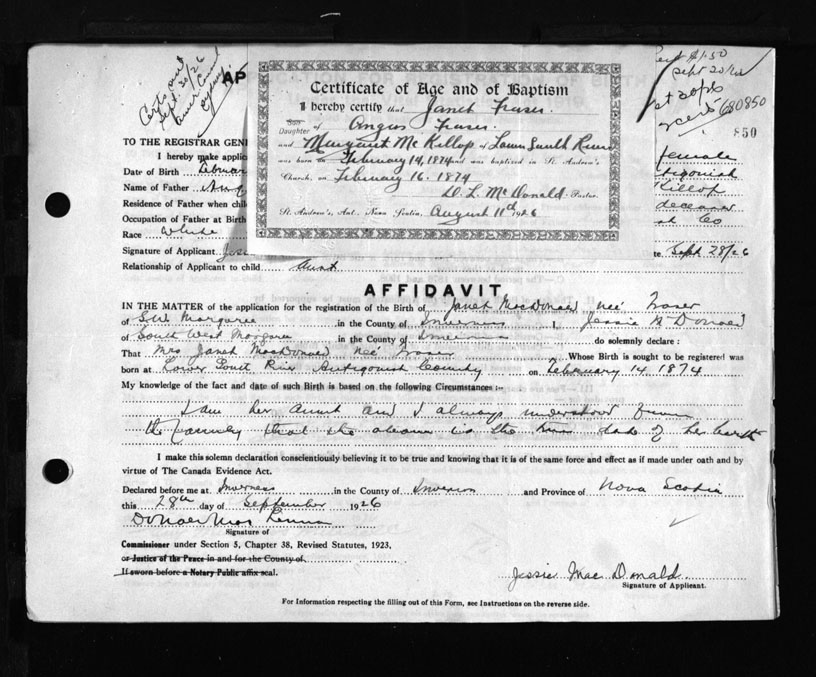 Certs sent
Sept. 30/26
AP
Sept 20/26
680850
850
Certificate of Age and of Baptism
I hereby certify that Janet Fraser.
Son
Daughter of Angus Fraser.
and Margaret McKillop of Lower South River
was born on February 14, 1874 and was baptized in St. Andrew's
Church, on February 16. 1874
D. L. McDonald Pastor.
St. Andrew's, Ant., Nova Scotia, August 11th 1926
TO THE REGISTRAR GEN
I hereby make applic
female
Date of Birth Februar
tigonish
Name of Father Ang
Killop
Residence of Father when chil
deceased
Occupation of Father at Birth
Co
Race White
Signature of Applicant Jess
te Sept 28/26
Relationship of Applicant to child Aunt
AFFIDAVIT
IN THE MATTER of the application for the registration of the Birth of Janet MacDonald neé Fraser
of S.W. Margaree in the County of Inverness I, Jessie McDonald
of South West Margaree in the County of Inverness do solemnly declare:
That Mrs Janet MacDonald neé Fraser Whose Birth is sought to be registered was
born at Lower South River Antigonish County on February 14. 1874
My knowledge of the fact and date of such Birth is based on the following Circumstances:-
I am her aunt and I always understood from
the family that the above is the true date of her birth
I make this solemn declaration conscientiously believing it to be true and knowing that it is of the same force and effect as if made under oath and by
virtue of The Canada Evidence Act.
Declared before me at Inverness in the County of Inverness and Province of Nova Scotia
this 28th day of September 1926
Donald Mac Lennan
Signature of
Commissioner under Section 5, Chapter 38, Revised Statutes, 1923,
or Justice of the Peace in and for the County of
If sworn before a Notary Public affix seal.
Jessie MacDonald
Signature of Applicant.
For Information respecting the filling out of this Form, see Instructions on the reverse side.